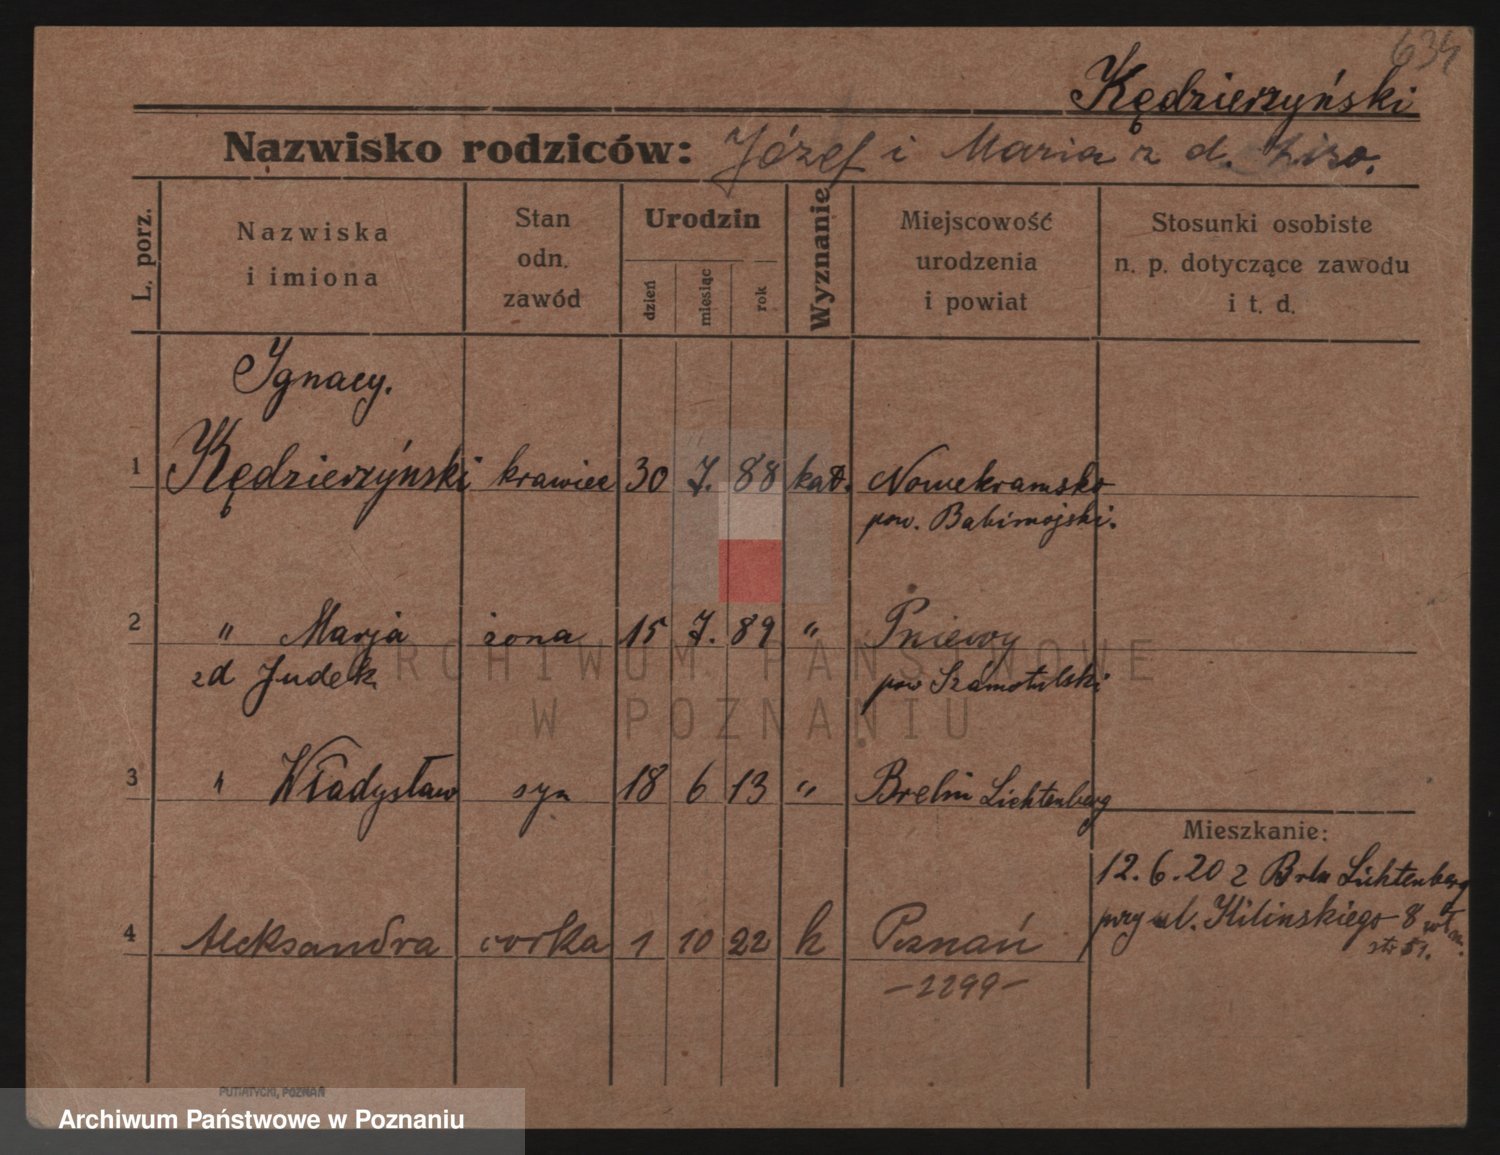 634
Kędzierzyński
Nazwisko rodziców: Józef i Maria z d.
L. porz.
Nazwiska
i imiona
Stan
odn.
zawód
Urodzin
dzień
miesiąc
rok
Wyznanie
Miejscowość
urodzenia
i powiat
Stosunki osobiste
n. p. dotyczące zawodu
i t. d.
Ignacy.
1 Kędzierzyński krawiec 30 7. 88 kat. Nowekramsko
pow. Babimojski.
2 " Marja żona 15 7. 89 " Pniewy
zd Judek pow Szamotulski
3 " Władysław syn 18 6 13 " Brelin Lichtenberg
Mieszkanie:
12.6.20 z Brln Lichtenberg
przy ul. Kilinskiego 8
str 51.
4 Aleksandra corka 1 10 22 k Poznań
-2299-
PUTIATYCKI, POZNAŃ
ARCHIWUM PAŃSTWOWE
W POZNANIU
Archiwum Państwowe w Poznaniu